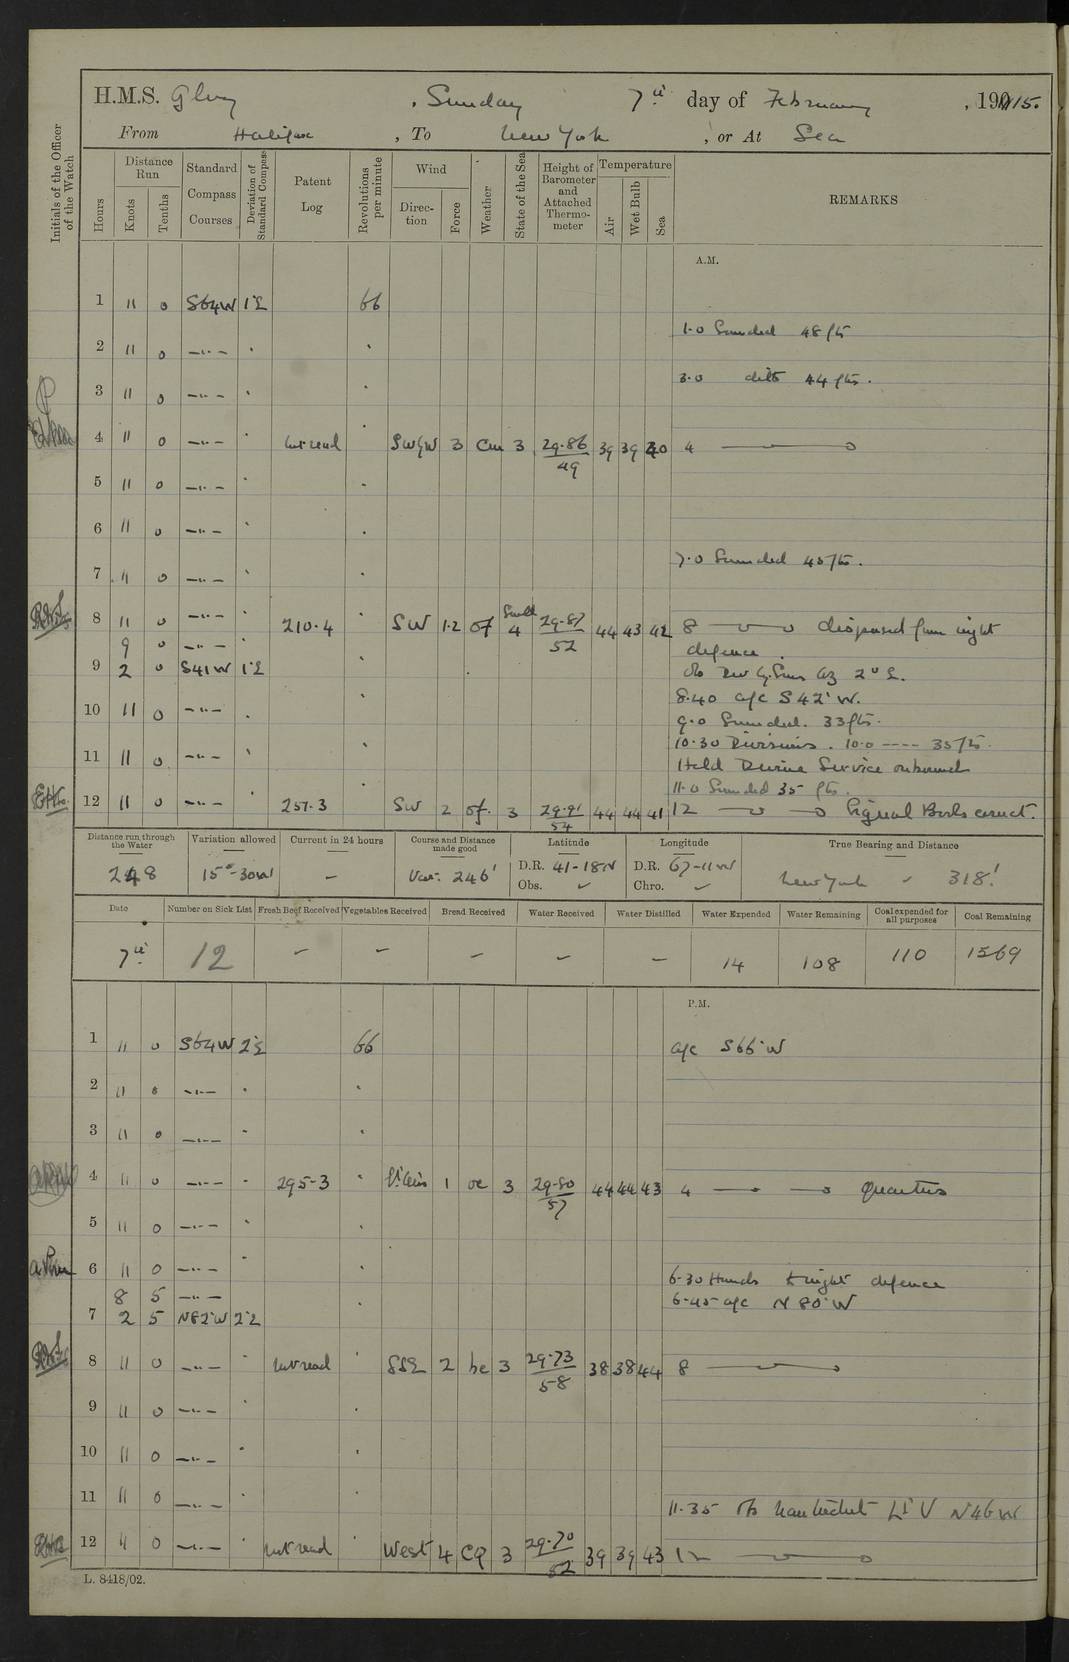 H.M.S. Glory , Sunday 7th day of February , 1915.
From Halifax , To New York , or At Sea
Initials of the Officer of the Watch
Hours Distance Run Knots Tenths Standard Compass Courses Deviation of Standard Compass Patent Log Revolutions per minute Wind Direction Force Weather State of the Sea Height of Barometer and Attached Thermometer Temperature Air Wet Bulb Sea REMARKS
A.M.
1 11 0 S64W 1°E 66
1.0 Sounded 48 fts
2 11 0 —"—
3.0 ditto 44 fts.
3 11 0 —"—
4 11 0 —"— not read SWbyW 3 cm 3 29.86/49 39 39 40 4
5 11 0 —"—
6 11 0 —"—
7.0 Sounded 45 fts.
7 11 0 —"—
8 11 0 —"— 210.4 SW 1.2 of Swell 4 29.87/52 44 43 42 8 dispersed from night
9 0 —"— defence.
9 2 0 S41W 1°E Ob Dev by Sun Az 2° E.
8.40 a/c S 42° W.
10 11 0 —"— 9.0 Sounded. 33 fts.
10.30 Divisions. 10.0 ---- 35 fts.
11 11 0 —"— Held Divine Service on board
11.0 Sounded 35 fts.
12 11 0 —"— 257.3 SW 2 of. 3 29.91/54 44 44 41 12 Signal Books correct.
Distance run through the Water Variation allowed Current in 24 hours Course and Distance made good Latitude Longitude True Bearing and Distance
248 15°-30W – Var. 246' D.R. 41-18N D.R. 67-11W New York 318'
Obs. Chro.
Date Number on Sick List Fresh Beef Received Vegetables Received Bread Received Water Received Water Distilled Water Expended Water Remaining Coal expended for all purposes Coal Remaining
7th 12 – – – – – 14 108 110 1569
P.M.
1 11 0 S64W 2°E 66 a/c S66°W
2 11 0 —"—
3 11 0 —"—
4 11 0 —"— 295-3 1 oc 3 29.80/57 44 44 43 4 Quarters
5 11 0 —"—
6 11 0 —"—
6.30 Hands to night defence
8 5 —"— 6.45 a/c N 80°W
7 2 5 N82°W 2°E
8 11 0 —"— not read SSE 2 bc 3 29.73/58 38 38 44 8
9 11 0 —"—
10 11 0 —"—
11 11 0 —"—
11.35 Ob Nantucket Lt V N46W
12 11 0 —"— not read West 4 cq 3 29.70/52 39 39 43 12
L. 8418/02.